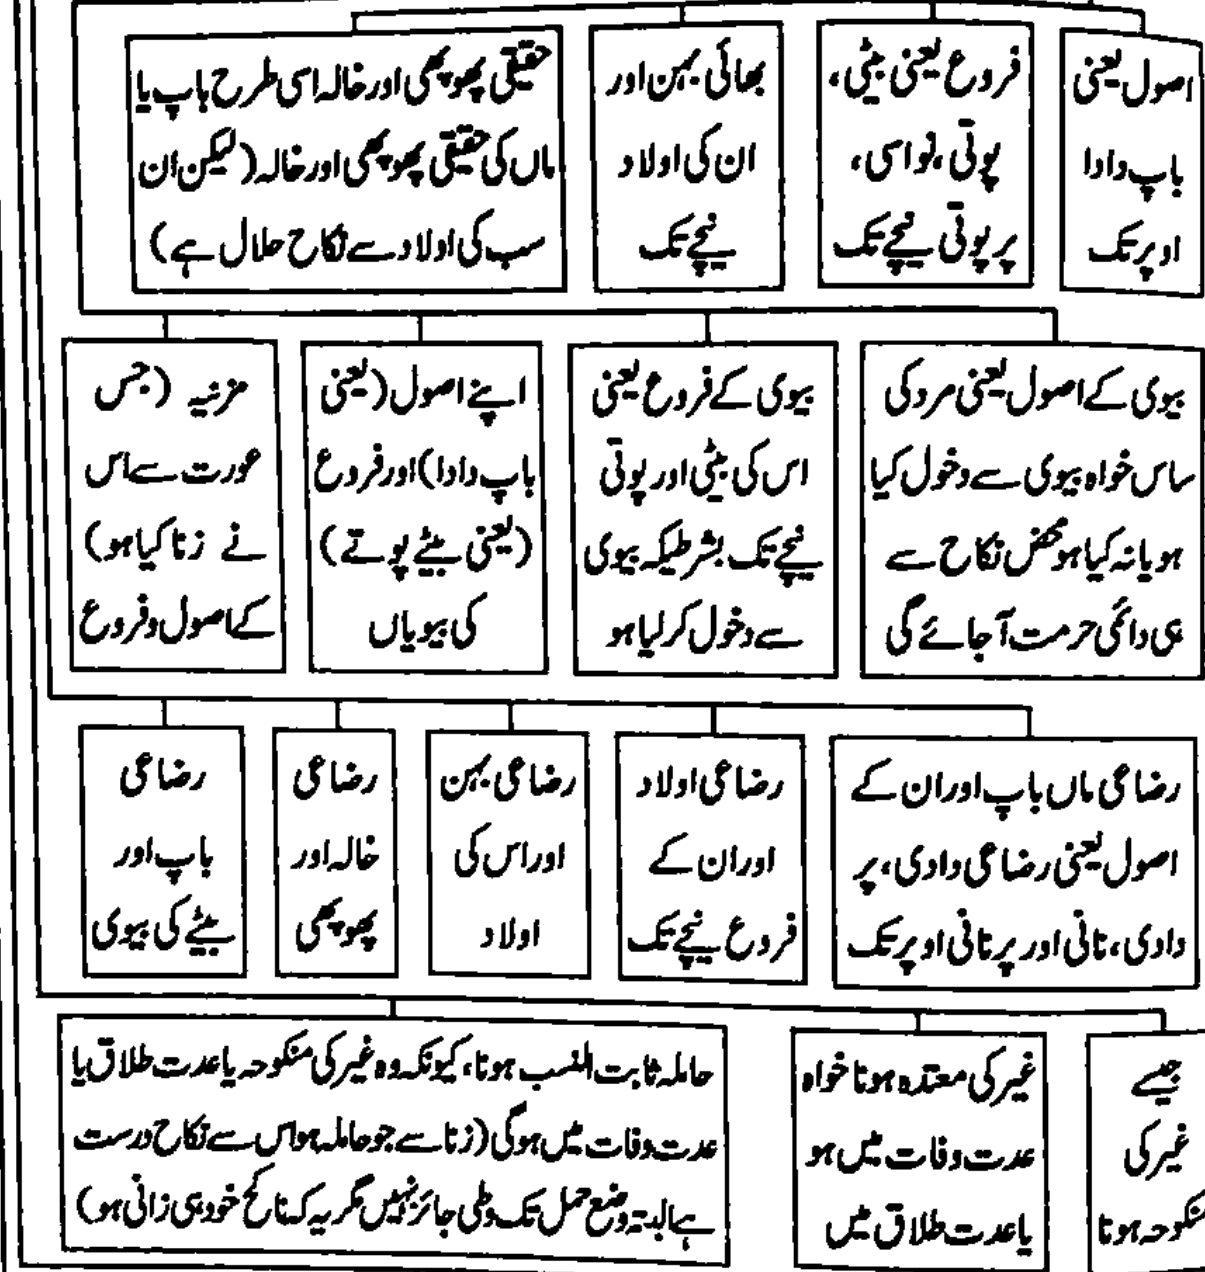 اصول یعنی
باپ دادا
اوپر تک
فروع یعنی بیٹی،
پوتی، نواسی،
پرپوتی نیچے تک
بھائی بہن اور
ان کی اولاد
نیچے تک
حقیقی پھوپھی اور خالہ اسی طرح باپ یا
ماں کی حقیقی پھوپھی اور خالہ (لیکن ان
سب کی اولاد سے نکاح حلال ہے)
بیوی کے اصول یعنی مرد کی
ساس خواہ بیوی سے دخول کیا
ہو یا نہ کیا ہو محض نکاح سے
ہی دائمی حرمت آ جائے گی
بیوی کے فروع یعنی
اس کی بیٹی اور پوتی
نیچے تک بشرطیکہ بیوی
سے دخول کر لیا ہو
اپنے اصول (یعنی
باپ دادا) اور فروع
(یعنی بیٹے پوتے)
کی بیویاں
مزنیہ (جس
عورت سے اس
نے زنا کیا ہو)
کے اصول و فروع
رضاعی ماں باپ اور ان کے
اصول یعنی رضاعی دادی، پر
دادی، نانی اور پرنانی اوپر تک
رضاعی اولاد
اور ان کے
فروع نیچے تک
رضاعی بہن
اور اس کی
اولاد
رضاعی
خالہ اور
پھوپھی
رضاعی
باپ اور
بیٹے کی بیوی
جیسے
غیر کی
منکوحہ ہونا
غیر کی معتدہ ہونا خواہ
عدت وفات میں ہو
یا عدت طلاق میں
حاملہ ثابت النسب ہونا، کیونکہ وہ غیر کی منکوحہ یا عدت طلاق یا
عدت وفات میں ہوگی (زنا سے جو حاملہ ہو اس سے نکاح درست
ہے البتہ وضع حمل تک وطی جائز نہیں مگر یہ کہ ناکح خود ہی زانی ہو)